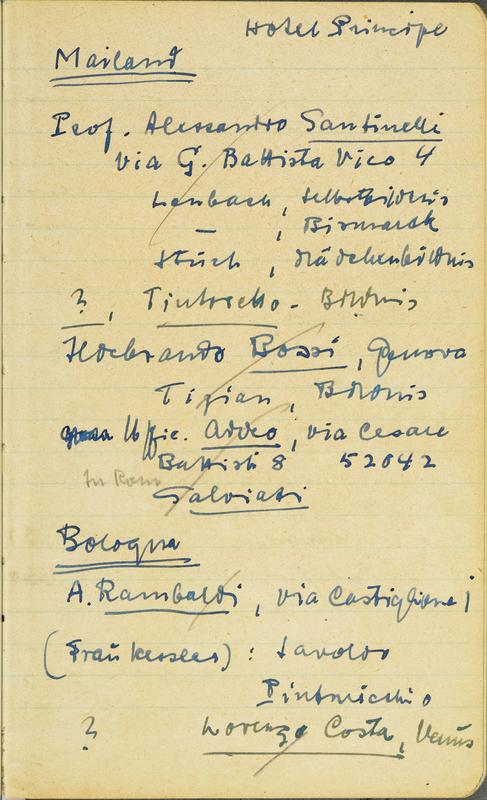 Hotel Principe
Mailand
Prof. Alessandro Santinelli
via G. Battista Vico 4
Lenbach, Selbstbildnis
— , Bismarck
Stuck, Mädchenbildnis
?, Tintoretto - Bildnis
Ildebrando Bossi, Genova
Tizian, Bildnis
Uffic. Addeo, via Cesare
Battisti 8 52042
In Rom
Salviati
Bologna
A. Rambaldi, via Castiglione 1
(Frau Kessler) : Savoldo
Pinturicchio
? Lorenzo Costa, Venus